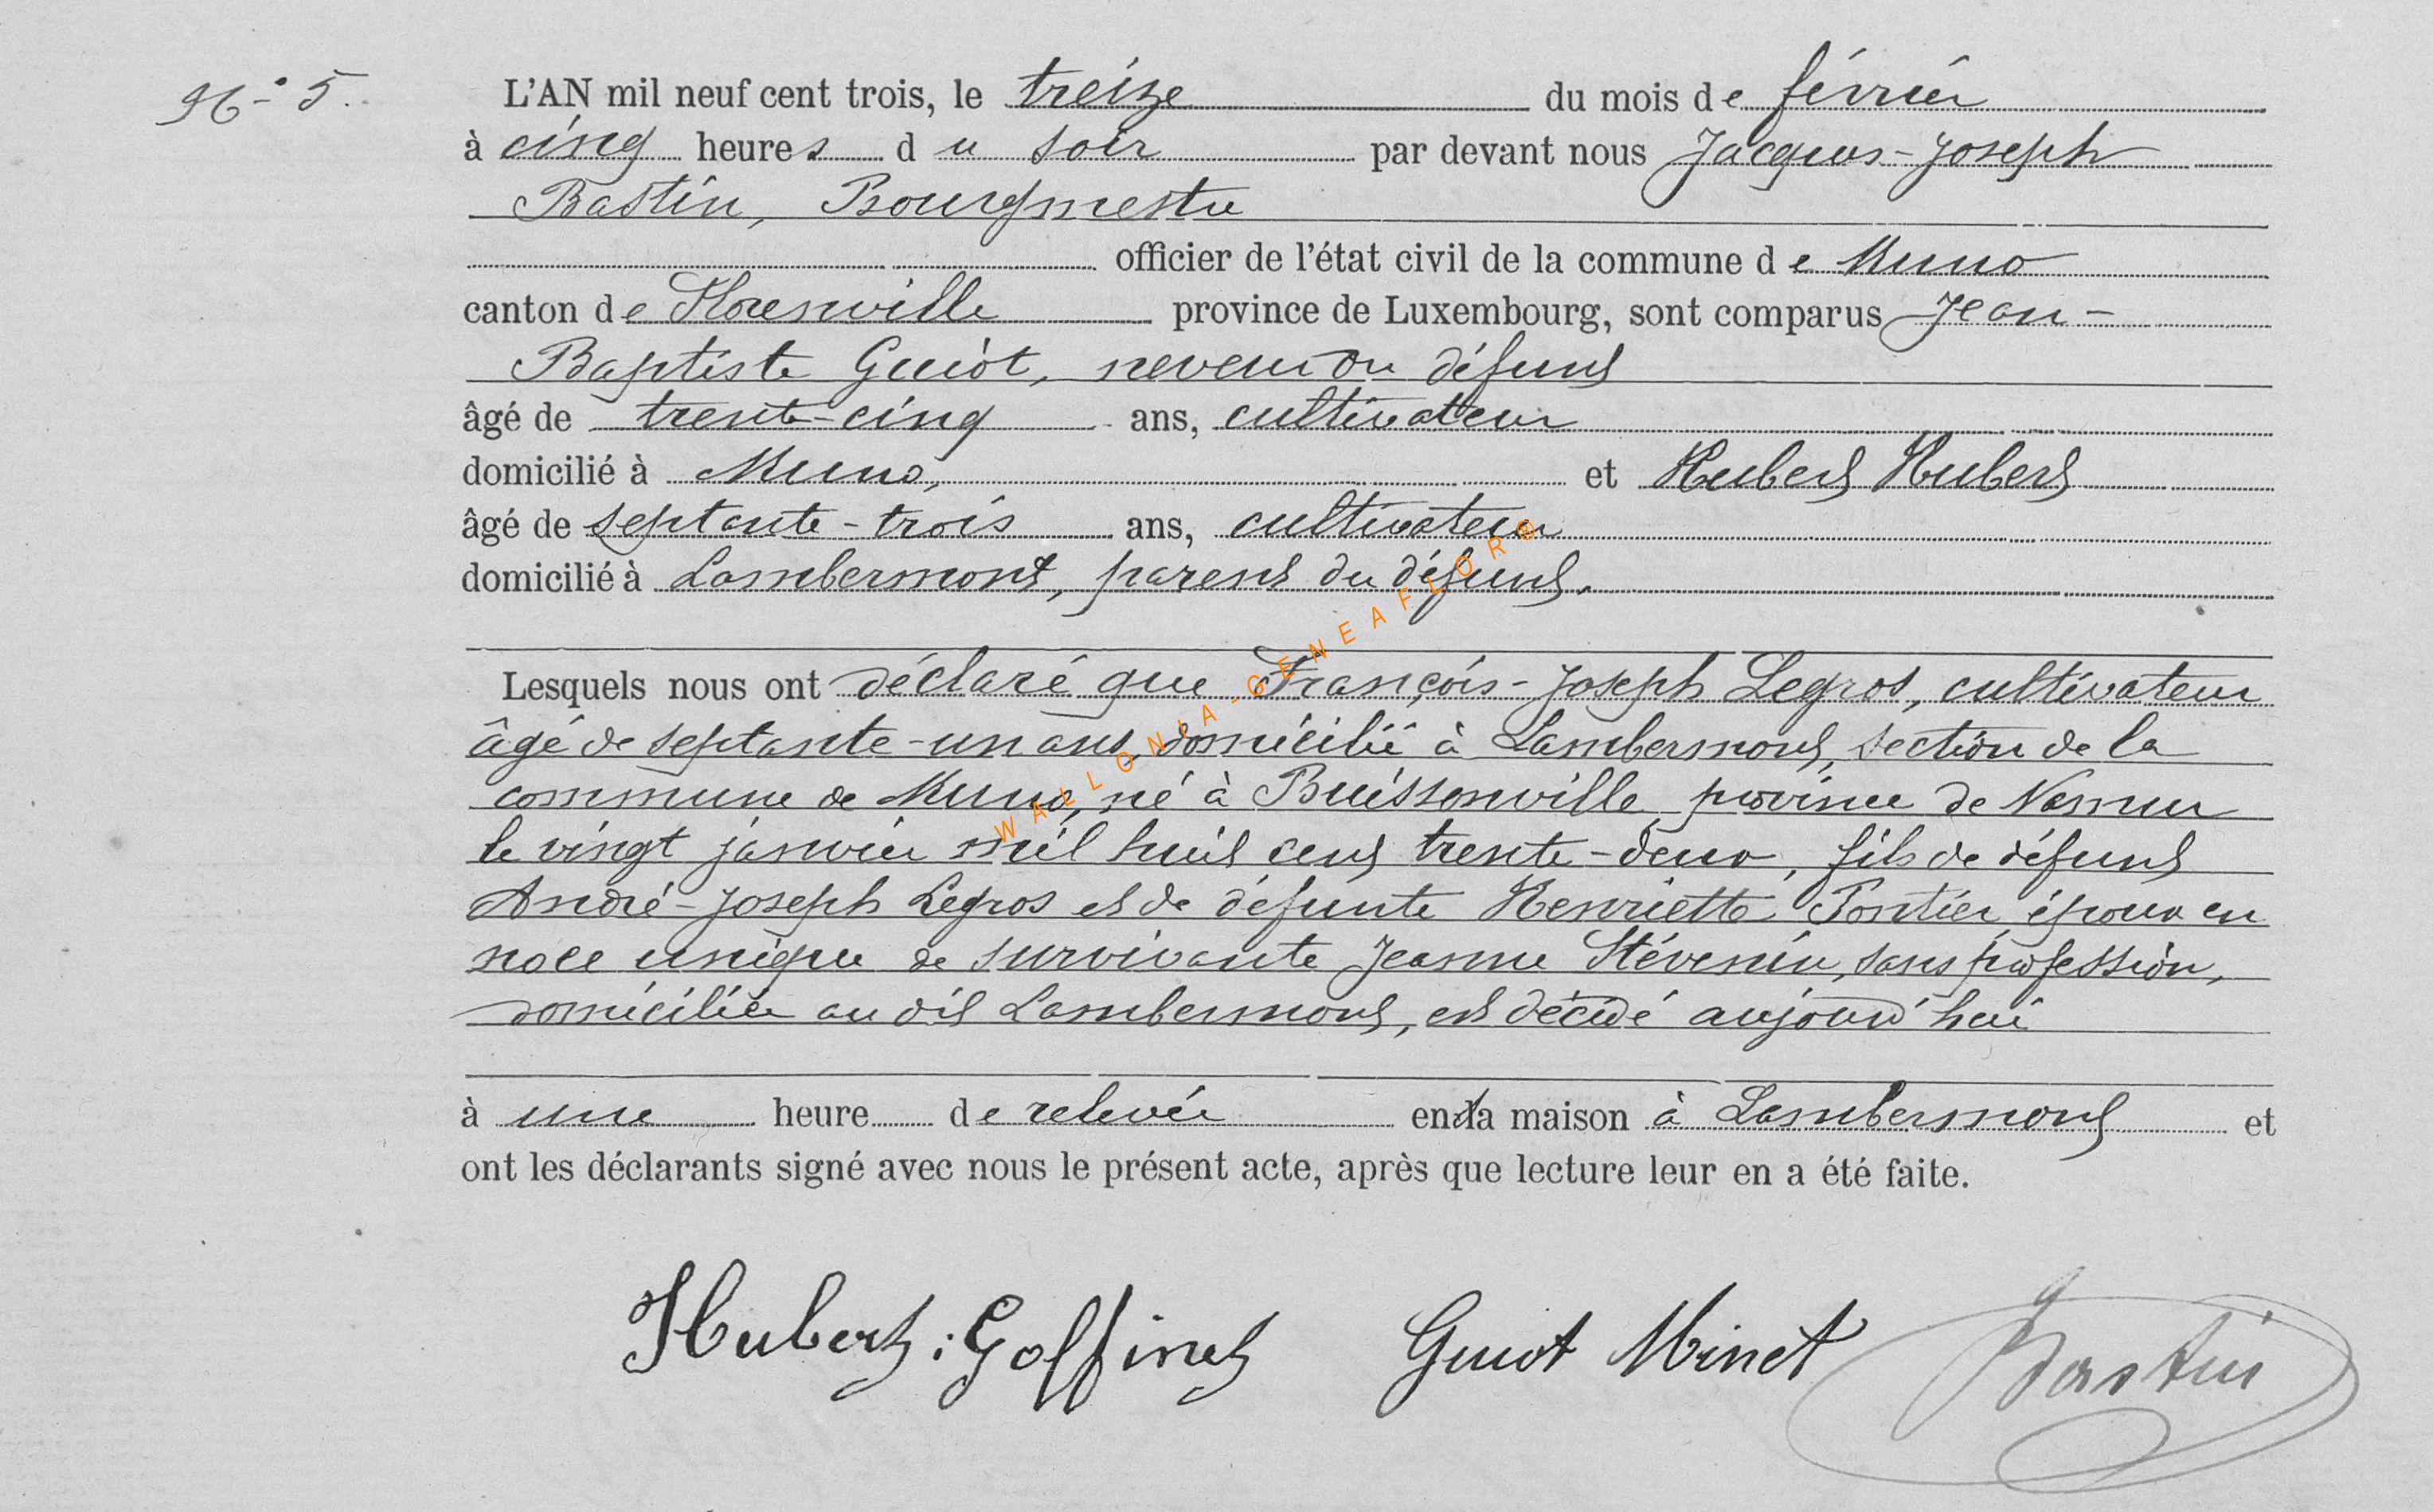 N° 5.
L'AN mil neuf cent trois, le treize du mois de février
à cinq heures du soir par devant nous Jacques-Joseph
Bastin, Bourgmestre
officier de l'état civil de la commune de Muno
canton de Florenville province de Luxembourg, sont comparus Jean-
Baptiste Guiot, neveu du défunt
âgé de trente-cinq ans, cultivateur
domicilié à Muno, et Hubert Hubert
âgé de septante-trois ans, cultivateur
domicilié à Lambermont, parent du défunt.
Lesquels nous ont déclaré que François-Joseph Legros, cultivateur
âgé de septante-un ans, domicilié à Lambermont, section de la
commune de Muno, né à Buissonville, province de Namur
le vingt janvier mil huit cent trente-deux, fils de défunt
André-Joseph Legros et de défunte Henriette Pontier, époux en
noce unique de survivante Jeanne Stévenin, sans profession,
domiciliée au dit Lambermont, est décédé aujourd'hui
à une heure de relevée en la maison à Lambermont et
ont les déclarants signé avec nous le présent acte, après que lecture leur en a été faite.
Hubert : Goffinet Guiot Minet Bastin
WALLONIA-GENEAFLOR®